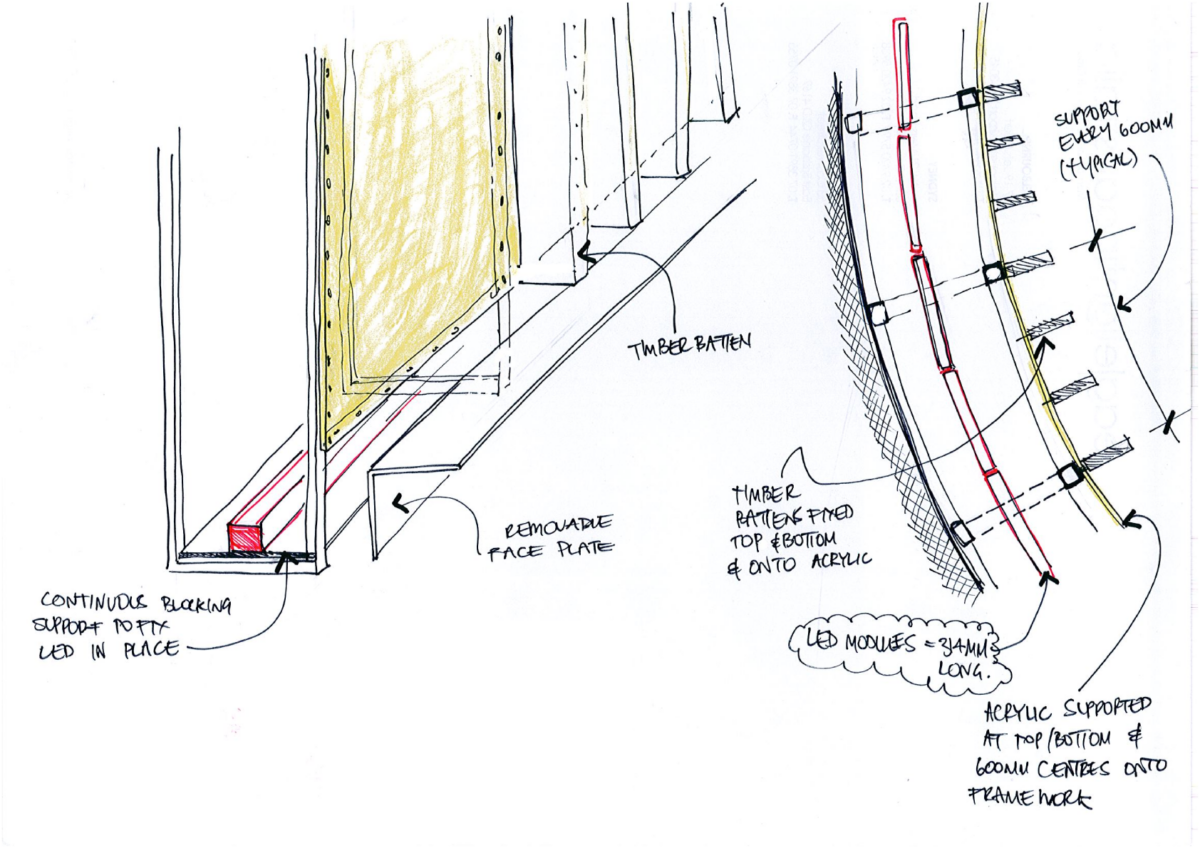 SUPPORT
EVERY 600MM
(TYPICAL)
TIMBER BATTEN
REMOVABLE
FACE PLATE
TIMBER
BATTENS FIXED
TOP & BOTTOM
& ONTO ACRYLIC
CONTINUOUS BLOCKING
SUPPORT TO FIX
LED IN PLACE
LED MODULES = 314MM
LONG.
ACRYLIC SUPPORTED
AT TOP/BOTTOM &
600MM CENTRES ONTO
FRAMEWORK